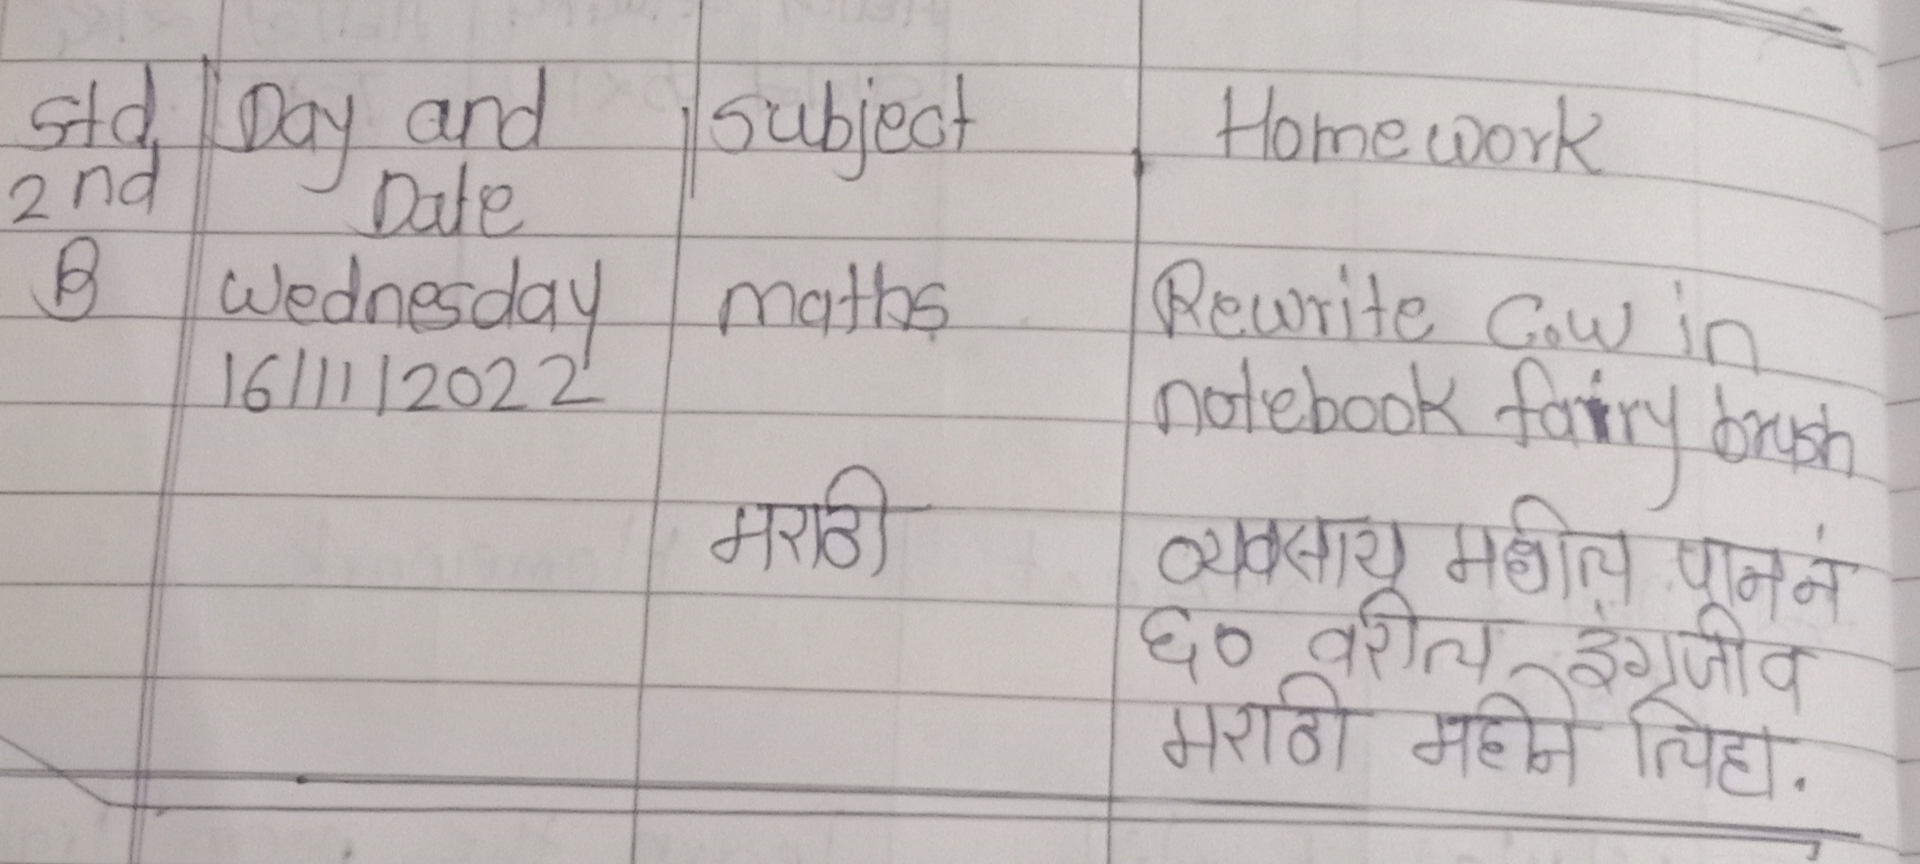 Std Day and Subject Homework
2nd Date
B Wednesday maths Rewrite C.W in
16/11/2022 notebook fairy brush
मराठी व्यवसाय मधील पान नं
६० वरील इंग्रजी व
मराठी महीने लिहा.